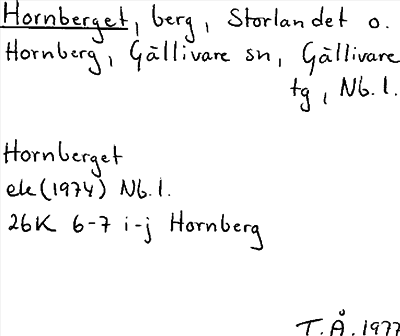 Hornberget, berg, Storlandet o.
Hornberg, Gällivare sn, Gällivare
tg, Nb. l.
Hornberget
ek (1974) Nb. l.
26K 6-7 i-j Hornberg
T. Å. 1977